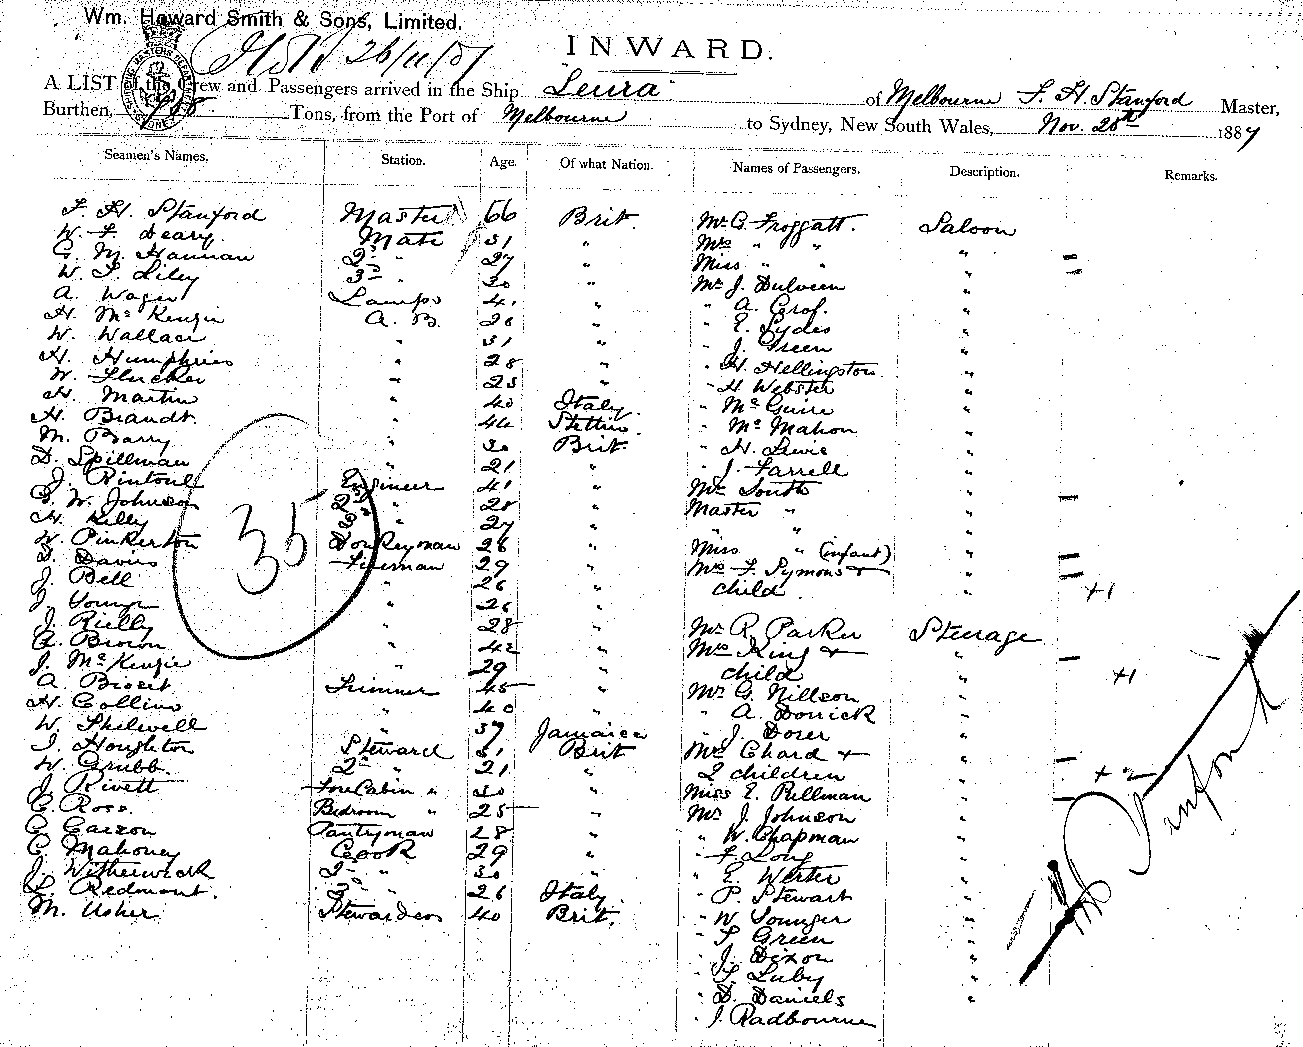 Wm. Howard Smith & Sons, Limited.
26/11/87
INWARD.
A LIST of the Crew and Passengers arrived in the Ship "Leura" of Melbourne F. H. Stanford Master,
Burthen, Tons, from the Port of Melbourne to Sydney, New South Wales, Nov. 26th 1887
Seamen's Names. Station. Age. Of what Nation. Names of Passengers. Description. Remarks.
F. H. Stanford Master 66 Brit. Mr G. Froggatt. Saloon
W. F. Deary. Mate 31 " Mrs " " "
G. M. Hannan 2nd " 27 " Miss " " "
W. S. Liley 3rd " 30 " Mr J. Dulveen "
A. Wager Lamps 41 " " A. Grof. "
H. McKenzie A. B. 26 " " E. Sydes "
W. Wallace " 31 " " J. Green "
H. Humphries " 28 " " H. Hellington "
W. Flucker " 25 " " H. Webster "
H. Martin " 40 Italy. " McGuire "
H. Brandt. " 44 Stettin. " McMahon "
M. Barry " 30 Brit. " H. Lewis "
D. Spillman " 21 " " J. Farrell "
J. Rintoul Engineer 41 " Mrs South "
G. W. Johnson 2nd " 28 " Master " "
H. Kelly 3rd " 27 " " " "
W. Pinkerton Donkeyman 28 " Miss " (infant) "
D. Davies Fireman 29 " Mrs F. Symons + "
J. Bell " 26 " child " +1
J. Young " 26 "
J. Rielly " 28 " Mr R. Parker Steerage
A. Brown " 42 " Mrs King + "
J. McKenzie " 29 " child " +1
A. Trimmer 45 " Mr G. Nillson "
H. Collins " 40 " " A. Dorrick "
W. Skilwell " 37 Jamaica " J. Dorer "
J. Houghton Steward 31 Brit Mrs Chard + "
W. Grubb. 2nd " 21 " 2 children " +2
J. Rivett Fore Cabin " 30 " Miss E. Pellman "
C. Ross. Bedroom " 25 " Mr J. Johnson "
C. Carson Pantryman 28 " " W. Chapman "
C. Mahoney Cook 29 " " F. Long "
J. Witherwick 2nd " 30 " " E. Werter "
L. Redmont. 3rd " 26 Italy. " P. Stewart "
M. Usher Stewardess 40 Brit. " W. Younger "
" S. Green "
" J. Dixon "
" S. Luby "
" D. Daniels "
" J. Radbourne
35
infant